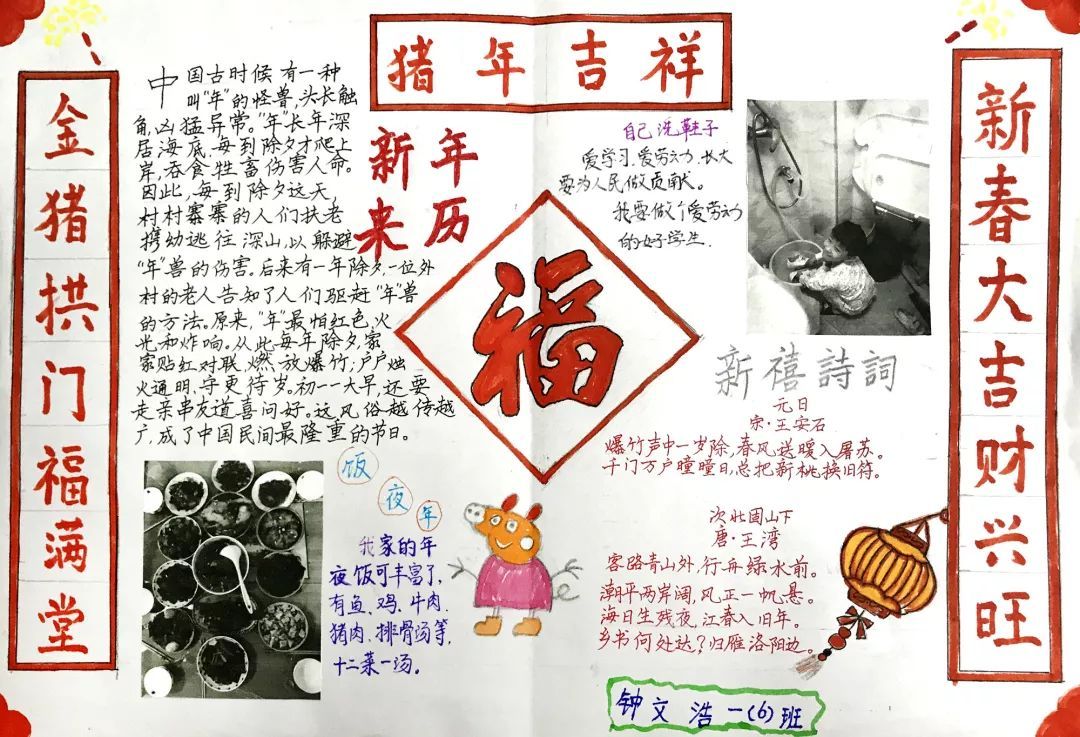 猪年吉祥
金猪拱门福满堂
新春大吉财兴旺
新年
来历
中国古时候有一种
叫“年”的怪兽，头长触
角，凶猛异常。“年”长年深
居海底，每到除夕才爬上
岸，吞食牲畜伤害人命。
因此，每到除夕这天，
村村寨寨的人们扶老
携幼逃往深山，以躲避
“年”兽的伤害。后来有一年除夕，一位外
村的老人告知了人们驱赶“年”兽
的方法。原来，“年”最怕红色，火
光和炸响。从此每年除夕，家
家贴红对联，燃放爆竹；户户烛
火通明，守更待岁。初一一大早，还要
走亲串友道喜问好。这风俗越传越
广，成了中国民间最隆重的节日。
福
自己洗鞋子
爱学习，爱劳动，长大
要为人民做贡献。
我要做个爱劳动
的好学生．
新禧詩詞
元日
宋·王安石
爆竹声中一岁除，春风送暖入屠苏。
千门万户瞳瞳日，总把新桃换旧符。
次壮固山下
唐·王湾
客路青山外，行舟绿水前。
潮平两岸阔，风正一帆悬。
海日生残夜，江春入旧年。
乡书何处达？归雁洛阳边。
饭
夜
年
我家的年
夜饭可丰富了，
有鱼、鸡、牛肉、
猪肉、排骨汤等，
十二菜一汤。
钟文浩一(6)班